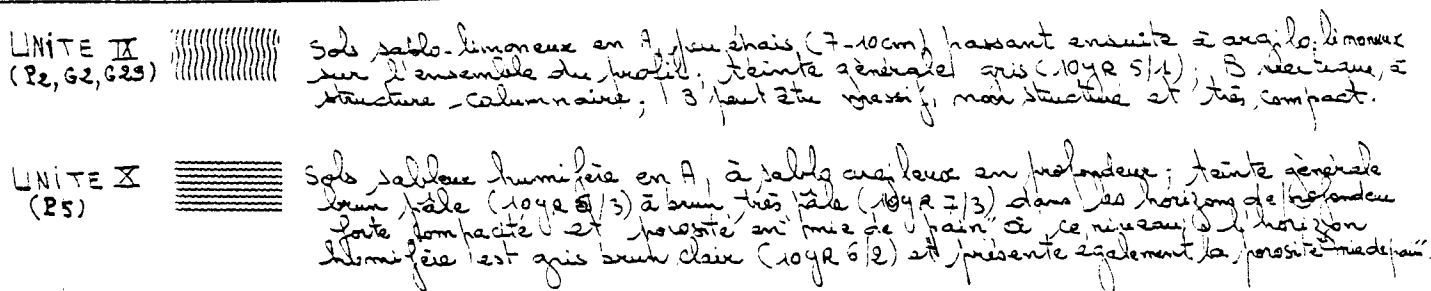 UNITE IX
(P2, G2, G29)
Sols sablo-limoneux en A, peu épais (7-10cm) passant ensuite à argilo-limoneux
sur l'ensemble du profil; teinte générale gris (10YR 5/1); B vertique, à
structure columnaire; B peut être massif, non structuré et très compact.
UNITE X
(P5)
Sols sableux humifère en A, à sablo argileux en profondeur; teinte générale
brun pâle (10YR 6/3) à brun très pâle (10YR 7/3) dans les horizons de profondeur
forte compacité et porosité en "mie de pain" à ce niveau; l'horizon
humifère est gris brun clair (10YR 6/2) et présente également la porosité "mie de pain".